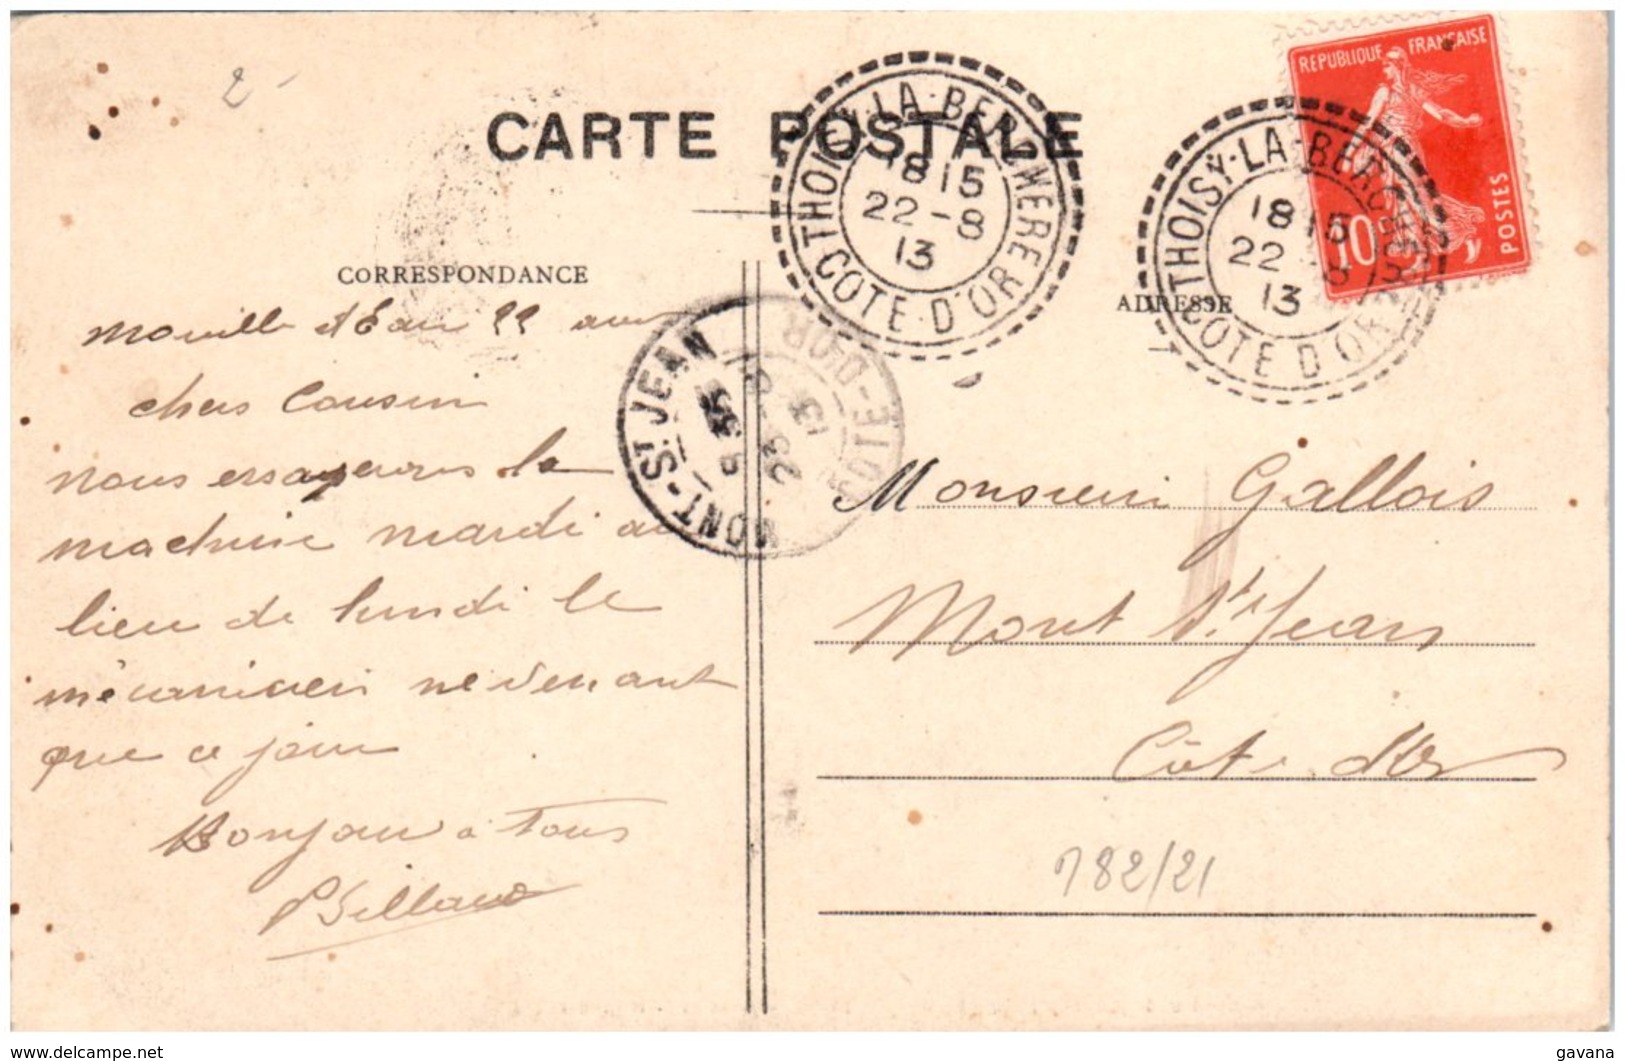 2 -
CARTE POSTALE
THOISY-LA-BERCHERE
18 15
22 - 8
13
COTE D'OR
REPUBLIQUE FRANÇAISE
10c
POSTES
THOISY-LA-BERCHERE
18 15
22 - 8
13
COTE D'OR
CORRESPONDANCE
ADRESSE
MONT-ST JEAN
23 - 8
13
COTE-D'OR
22
chers Cousin
nous essayerons la
machine mardi au
lieu de lundi le
mécanicien ne venant
que ce jour
Bonjour à Tous
Monsieur Gallois
Mont St Jean
Côte d'Or
782/21
delcampe.net
gavana